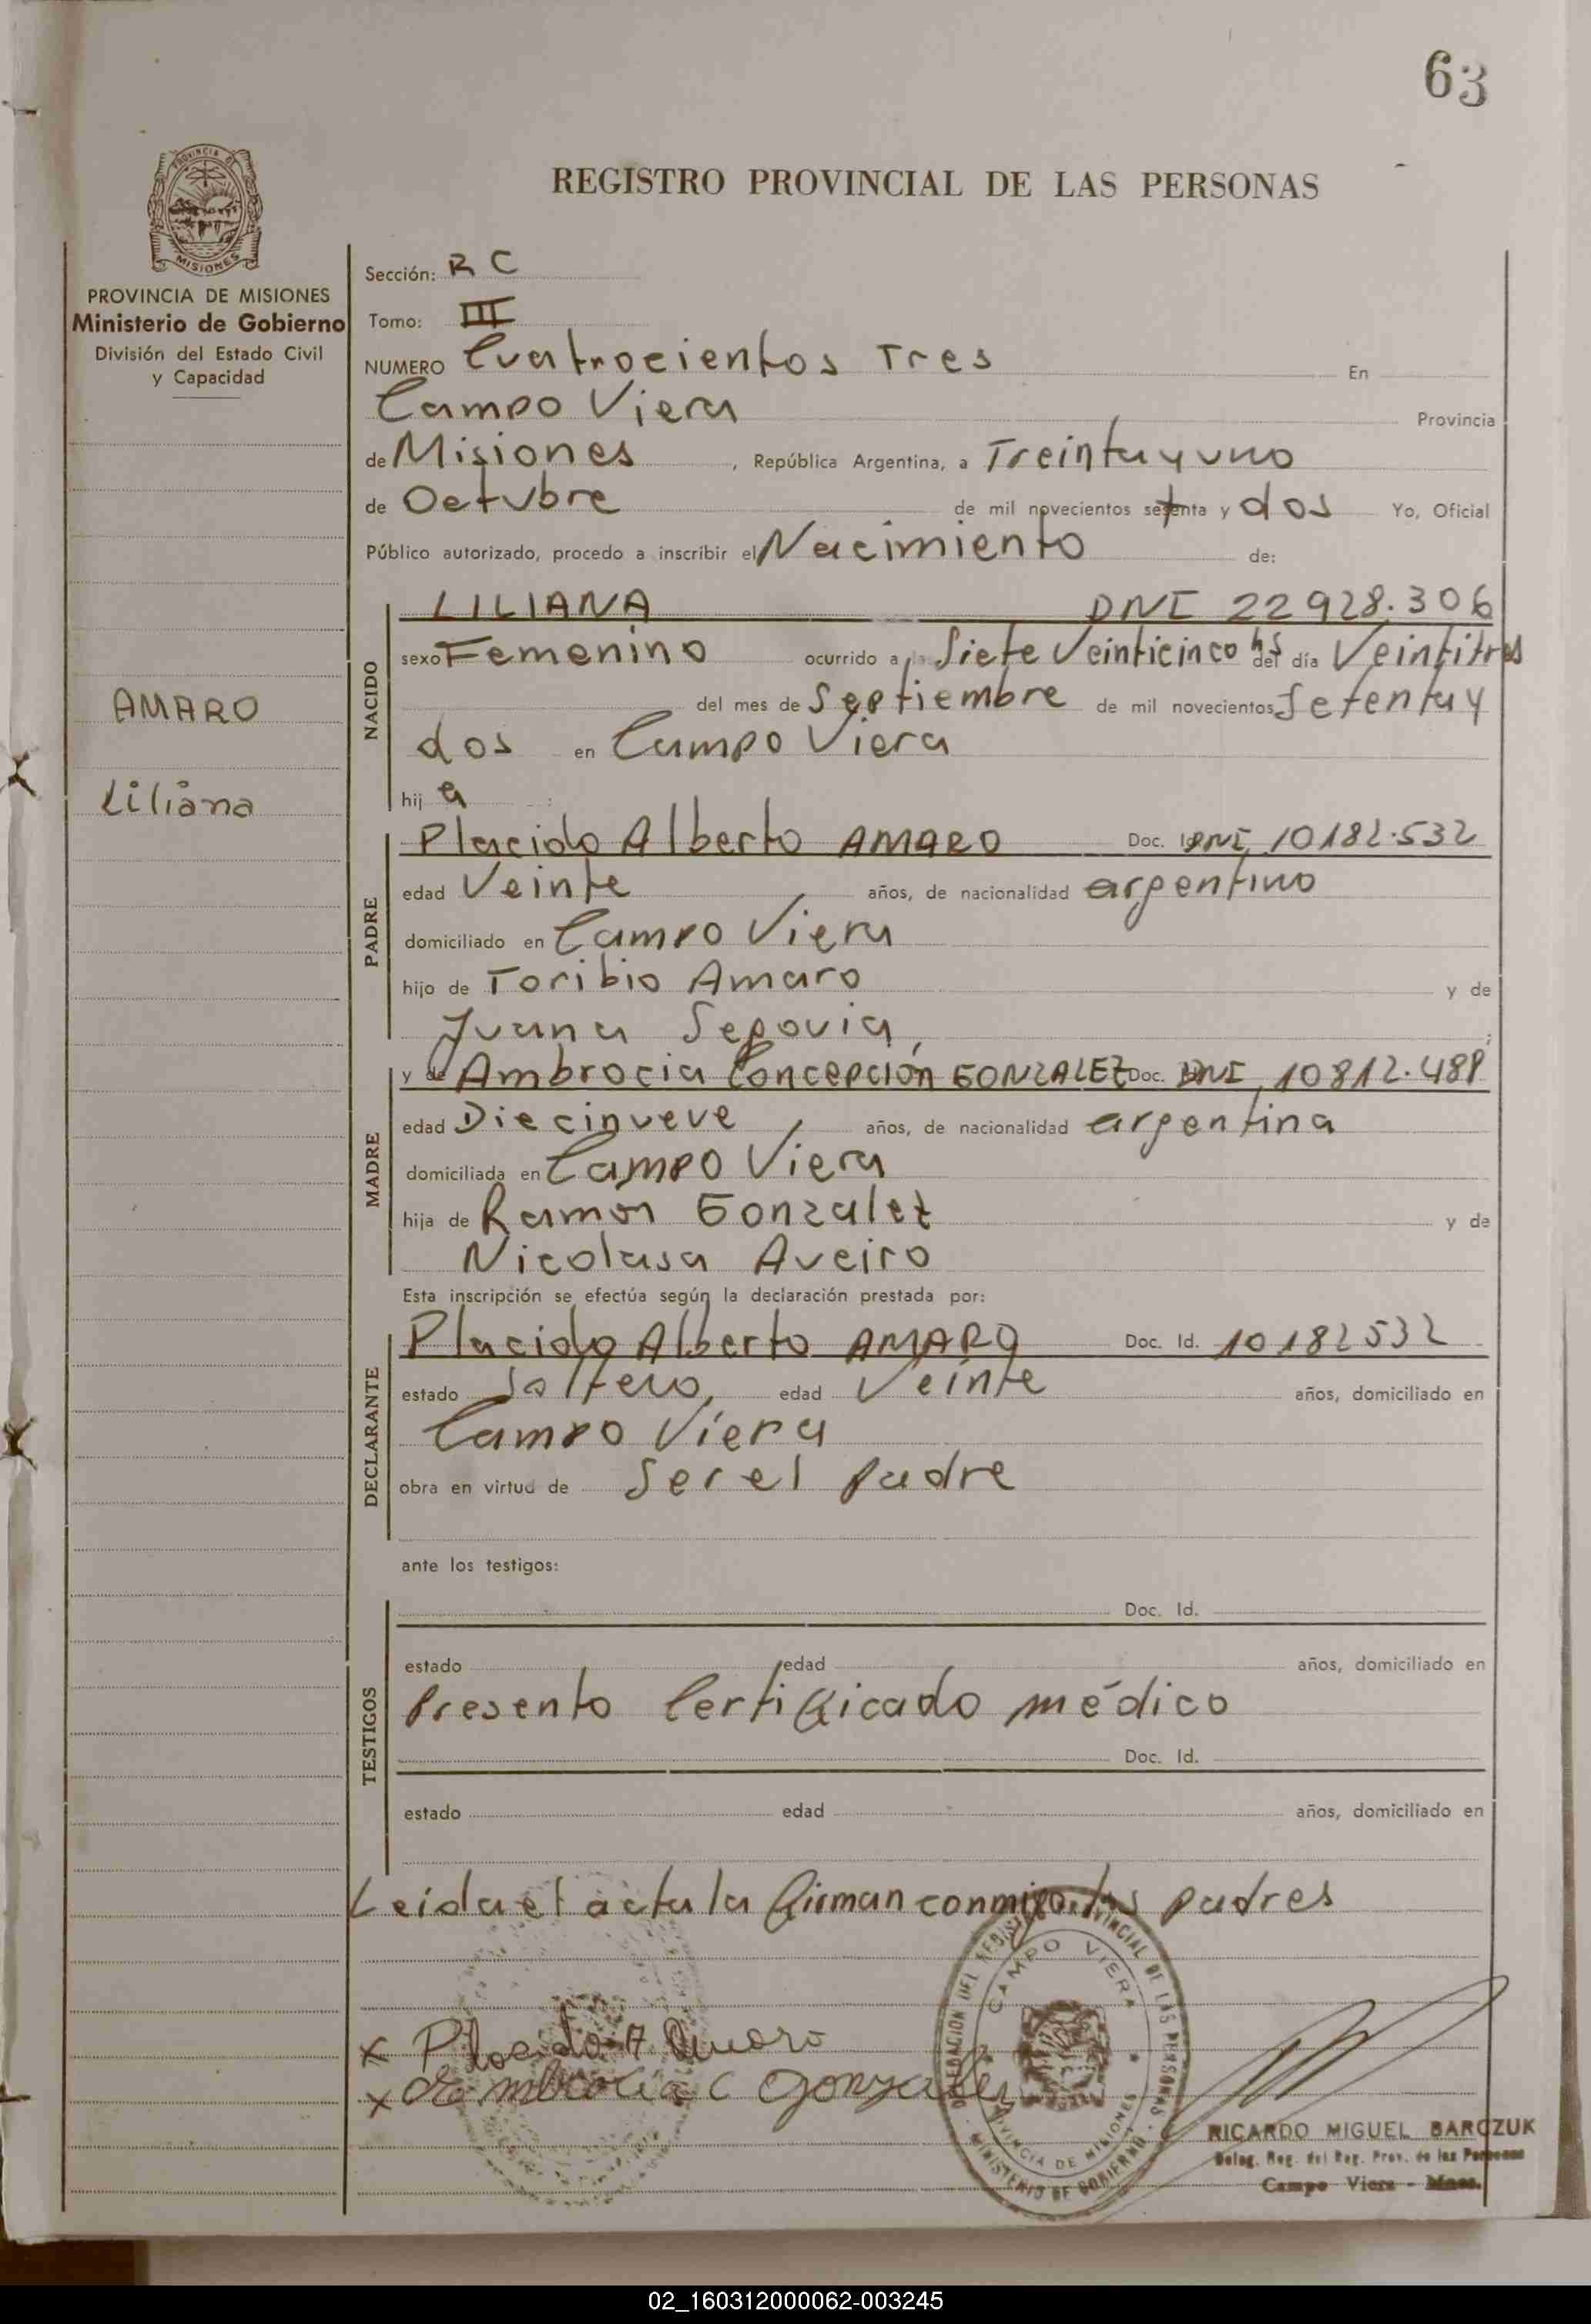 63
REGISTRO PROVINCIAL DE LAS PERSONAS
PROVINCIA DE
MISIONES
PROVINCIA DE MISIONES
Ministerio de Gobierno
División del Estado Civil
y Capacidad
AMARO
Liliana
Sección: R C
Tomo: III
NUMERO Cuatrocientos Tres En
Campo Viera Provincia
de Misiones, República Argentina, a Treinta y uno
de Octubre de mil novecientos setenta y dos Yo, Oficial
Público autorizado, procedo a inscribir el Nacimiento de:
NACIDO
LILIANA DNI 22928.306
sexo Femenino ocurrido a la Siete Veinticinco hs del día Veintitres
del mes de Septiembre de mil novecientos Setenta y
dos en Campo Viera
hij a :
PADRE
Placido Alberto AMARO Doc. DNI 10182.532
edad Veinte años, de nacionalidad argentino
domiciliado en Campo Viera
hijo de Toribio Amaro y de
Juana Segovia, ;
MADRE
y de Ambrocia Concepción GONZALEZ Doc. DNI 10812.488
edad Diecinueve años, de nacionalidad argentina
domiciliada en Campo Viera
hija de Ramon Gonzalez y de
Nicolasa Aveiro
Esta inscripción se efectúa según la declaración prestada por:
DECLARANTE
Placido Alberto AMARO Doc. Id. 10182532
estado Soltero, edad Veinte años, domiciliado en
Campo Viera
obra en virtud de Ser el padre
ante los testigos:
TESTIGOS
Doc. Id.
estado edad años, domiciliado en
Presento Certificado médico
Doc. Id.
estado edad años, domiciliado en
Leida el acta la firman conmigo los padres
DELEGACION DEL REGISTRO PROVINCIAL DE LAS PERSONAS
CAMPO VIERA
PROVINCIA DE MISIONES
MINISTERIO DE GOBIERNO
x Placido A Amaro
x Ambrocia C Gonzalez
RICARDO MIGUEL BARCZUK
Deleg. Reg. del Reg. Prov. de las Personas
Campo Viera - Mnes.
02_160312000062-003245